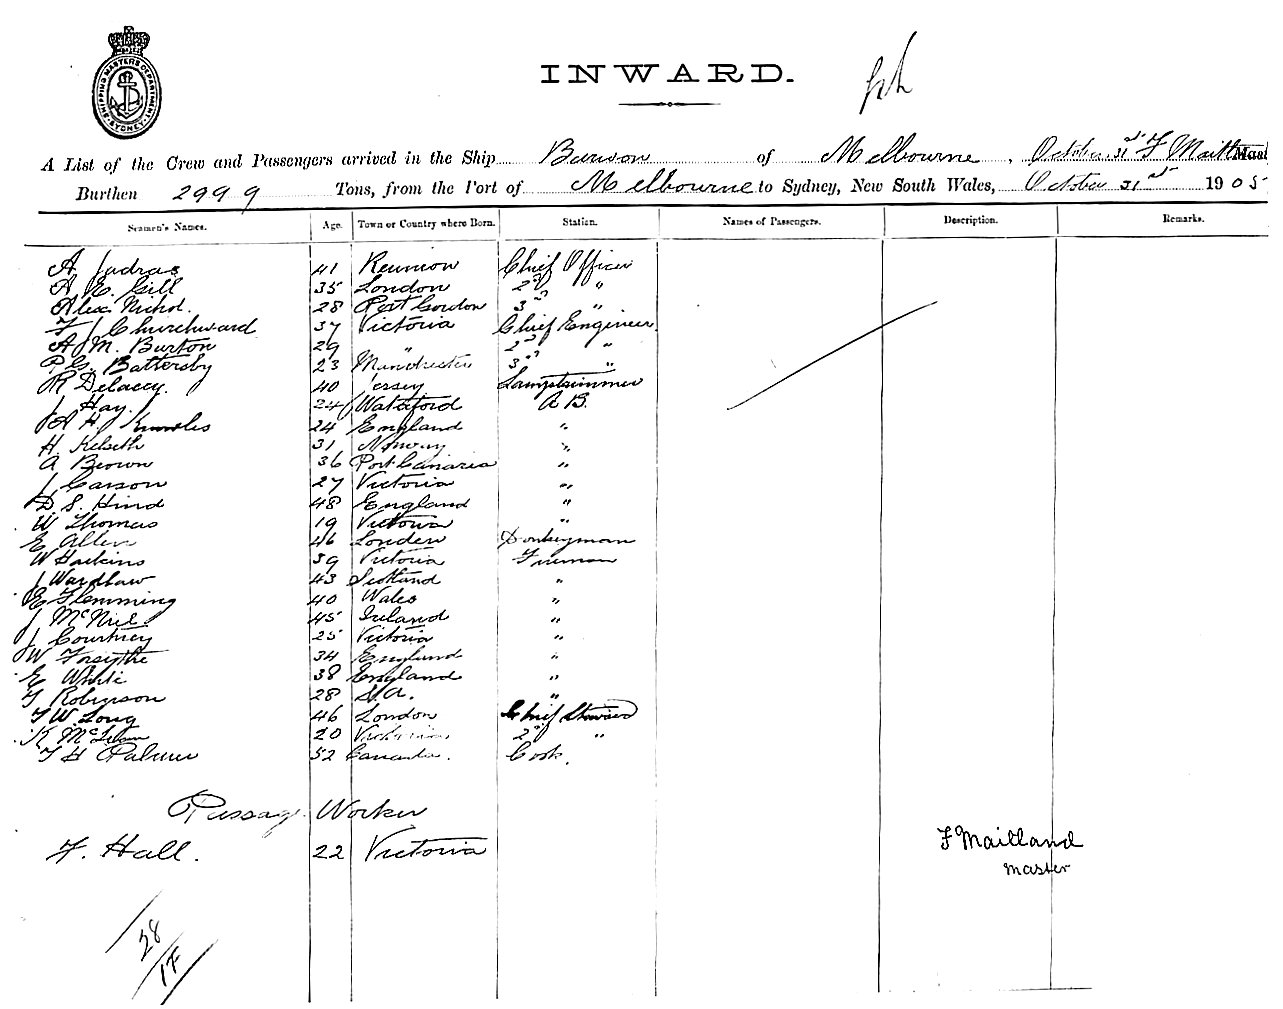 SHIPPING MASTERS DEPARTMENT SYDNEY
INWARD.
A List of the Crew and Passengers arrived in the Ship Barwon of Melbourne, October 31st F Maitland
Burthen 2999 Tons, from the Port of Melbourne to Sydney, New South Wales, October 31st 1905
Seamen's Names. Age. Town or Country where Born. Station. Names of Passengers. Description. Remarks.
A 41 Reunion Chief Officer
A E. Gill 35 London 2nd "
Alex Nichol. 28 Port Gordon 3rd "
F J Churchward 37 Victoria Chief Engineer
A M. Burton 29 " 2nd "
P G. Battersby 23 Manchester 3rd "
R Delacey. 40 Jersey Lamptrimmer
J Hay. 24 Waterford A B.
A H 24 England "
H. Kelseth 31 Norway "
A Brown 36 Port Canaria "
J Carson 27 Victoria "
D S. Hind 48 England "
W Thomas 19 Victoria "
E Allen 46 London Donkeyman
W Haskins 39 Victoria Fireman
J Wardlaw 43 Scotland "
E Flemming 40 Wales "
J McNiel 45 Ireland "
J Courtney 25 Victoria "
W Forsythe 34 England "
E White 38 England "
T Robinson 28 S.A. "
T W. Long 46 London Chief Steward
K McLean 20 Victoria 2nd "
T H Palmer 52 Canada. Cook.
Passage Worker
F. Hall. 22 Victoria
F Maitland
Master
28
1F